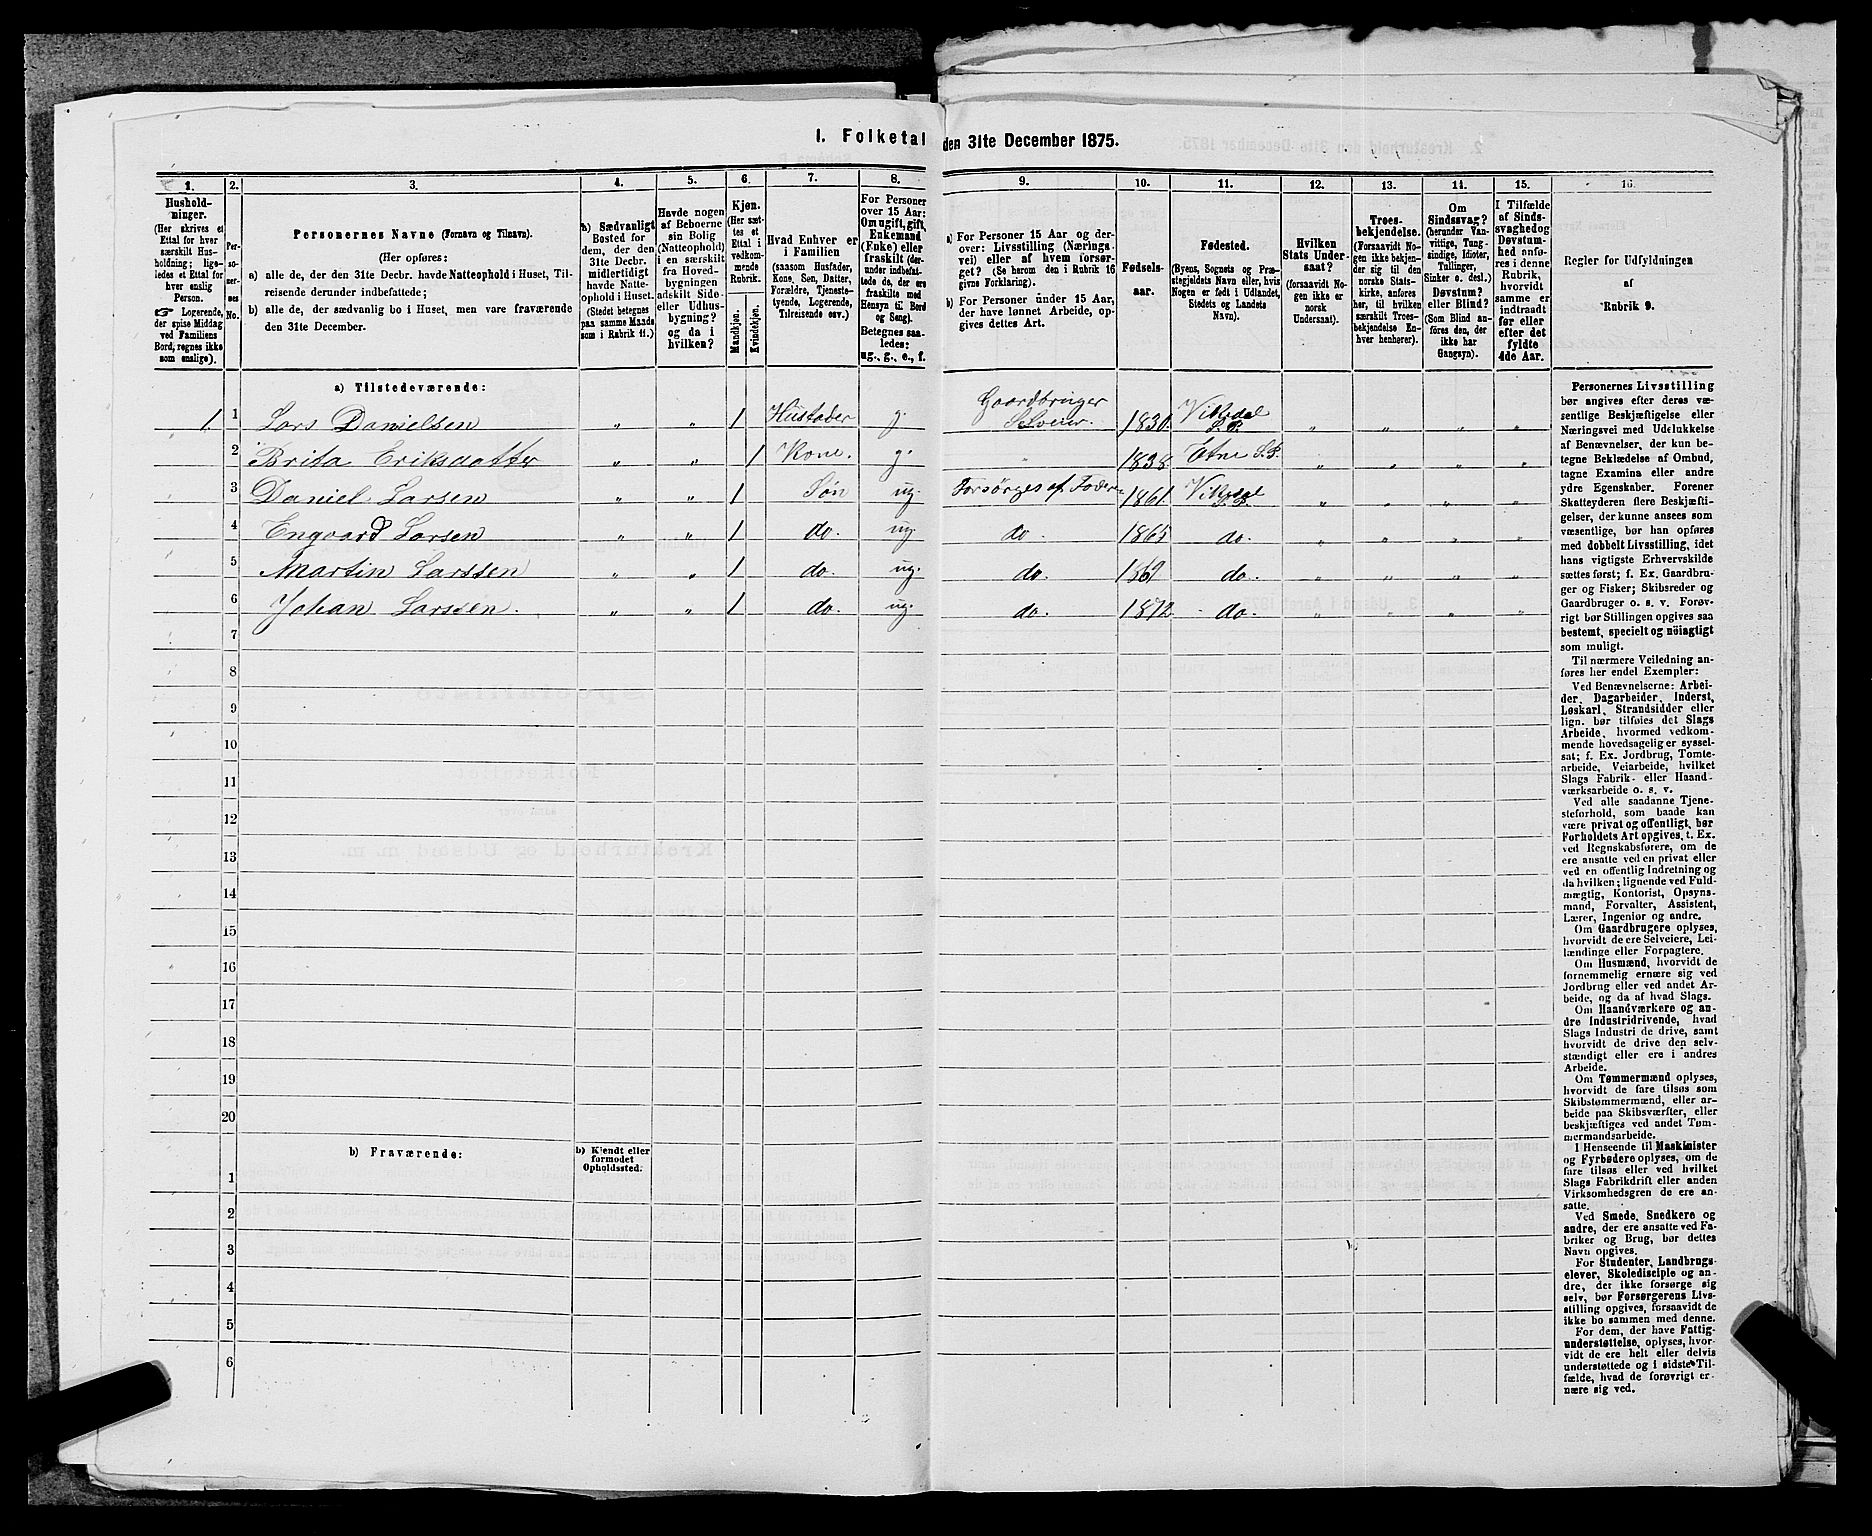 I. Folketal den 31te December 1875.
1. 2. 3. 4. 5. 6. 7. 8. 9. 10. 11. 12. 13. 14. 15. 16.
Hushold-
ninger.
(Her skrives et
Ettal for hver
særskilt Hus-
holdning; lige-
ledes et Ettal for
hver enslig
Person.
☞ Logerende,
der spise Middag
ved Familiens
Bord, regnes ikke
som enslige).
Per-
so-
ner-
nes
No.
Personernes Navne (Fornavn og Tilnavn).
(Her opføres:
a) alle de, der den 31te Decbr. havde Natteophold i Huset, Til-
reisende derunder indbefattede;
b) alle de, der sædvanlig bo i Huset, men vare fraværende
den 31te December.
a) Sædvanligt
Bosted for
dem, der den
31te Decbr.
midlertidigt
havde Natte-
ophold i Huset.
(Stedet betegnes
paa samme Maade
som i Rubrik 11.)
Havde nogen
af Beboerne
sin Bolig
(Natteophold)
i en særskilt
fra Hoved-
bygningen
adskilt Side-
eller Udhus-
bygning?
og da i
hvilken?
Kjøn.
(Her sæt-
tes et
Ettal i
vedkom-
mende
Rubrik.
Mandkjøn.
Kvindekjøn.
Hvad Enhver er
i Familien
(saasom Husfader,
Kone, Søn, Datter,
Forældre, Tjeneste-
tyende, Logerende,
Tilreisende osv.)
For Personer
over 15 Aar:
Om ugift, gift,
Enkemand
(Enke) eller
fraskilt (der-
under indbefat-
tede de, der ere
fraskilte med
Hensyn til Bord
og Seng).
Betegnes saa-
ledes:
ug., g., e., f.
a) For Personer 15 Aar og der-
over: Livsstilling (Nærings-
vei) eller af hvem forsør-
get? (Se herom den i Rubrik 16
givne Forklaring).
b) For Personer under 15 Aar,
der have lønnet Arbeide, op-
gives dettes Art.
Fødsels-
aar.
Fødested.
(Byens, Sognets og Præ-
stegjeldets Navn eller, hvis
Nogen er født i Udlandet,
Stedets og Landets
Navn).
Hvilken
Stats Under-
saat?
(forsaavidt No-
gen ikke er
norsk
Undersaat).
Troes-
bekjendelse.
(Forsaavidt No-
gen ikke bekjen-
der sig til den
norske Stats-
kirke, anføres
her, til hvilken
særskilt Troes-
bekjendelse En-
hver henhører).
Om
Sindssvag?
(herunder Van-
vittige, Tung-
sindige, Idioter,
Tullinger,
Sinker o. desl.)
Døvstum?
eller Blind?
(Som Blind an-
føres den, der
ikke har
Gangsyn).
I Tilfælde
af Sinds-
svaghed og
Døvstum-
hed anfø-
res i denne
Rubrik,
hvorvidt
samme er
indtraadt
før eller
efter det
fyldte
4de Aar.
Regler for Udfyldningen
af
Rubrik 9.
a) Tilstedeværende:
1 1 Lars Danielsen „ „ 1 Husfader g. Gaardbruger Selveier. 1830. Vikedal S.P. „ „ „ „
2 Brita Eriksdatter „ „ 1 Kone. g. „ 1838. Etne S.P. „ „ „ „
3 Daniel Larsen „ „ 1 Søn ug. Forsørges af Fader 1861. Vikedal S.P. „ „ „ „
4 Engvard Larsen „ „ 1 do. ug do. 1865 do. „ „ „ „
5 Martin Larssen „ „ 1 do. ug. do. 1869 do. „ „ „ „
6 Johan Larssen. „ „ 1 do. ug. do. 1872. do. „ „ „ „
7
8
9
10
11
12
13
14
15
16
17
18
19
20
b) Fraværende:
b) Kjendt eller
formodet
Opholdssted.
1
2
3
4
5
6
Personernes Livsstilling
bør angives efter deres væ-
sentlige Beskjæftigelse eller
Næringsvei med Udelukkelse
af Benævnelser, der kun be-
tegne Beklædelse af Ombud,
tagne Examina eller andre
ydre Egenskaber. Forener
Skatteyderen flere Beskjæfti-
gelser, der kunne ansees som
væsentlige, bør han opføres
med dobbelt Livsstilling, idet
hans vigtigste Erhvervskilde
sættes først; f. Ex. Gaardbru-
ger og Fisker; Skibsreder og
Gaardbruger o. s. v. Forøv-
rigt bør Stillingen opgives saa
bestemt, specielt og nöiagtigt
som muligt.
Til nærmere Veiledning an-
føres her endel Exempler:
Ved Benævnelserne: Arbei-
der, Dagarbeider, Inderst,
Løskarl, Strandsidder eller
lign. bør tilføies det Slags
Arbeide, hvormed vedkom-
mende hovedsagelig er syssel-
sat; f. Ex. Jordbrug, Tomte-
arbeide, Veiarbeide, hvilket
Slags Fabrik- eller Haand-
værksarbeide o. s. v.
Ved alle saadanne Tjene-
steforhold, som baade kan
være privat og offentligt, bør
Forholdets Art opgives, t. Ex.
ved Regnskabsførere, om de
ere ansatte ved en privat eller
ved en offentlig Indretning og
da hvilken; lignende ved Fuld-
mægtig, Kontorist, Opsyns-
mand, Forvalter, Assistent,
Lærer, Ingeniør og andre.
Om Gaardbrugere oplyses,
hvorvidt de ere Selveiere, Lei-
lændinge eller Forpagtere.
Om Husmænd, hvorvidt de
fornemmelig ernære sig ved
Jordbrug eller ved andet Ar-
beide, og da af hvad Slags.
Om Haandværkere og an-
dre Industridrivende, hvad
Slags Industri de drive, samt
hvorvidt de drive den selv-
stændigt eller ere i andres
Arbeide.
Om Tømmermænd oplyses,
hvorvidt de fare tilsøs som
Skibstømmermænd, eller ar-
beide paa Skibsværfter, eller
beskjæftiges ved andet Tøm-
mermandsarbeide.
I Henseende til Maskinister
og Fyrbødere oplyses, om de
fare tilsøs eller ved hvilket
Slags Fabrikdrift eller anden
Virksomhedsgren de ere an-
satte.
Ved Smede, Snedkere og
andre, der ere ansatte ved Fa-
briker og Brug, bør dettes
Navn opgives.
For Studenter, Landbrugs-
elever, Skoledisciple og an-
dre, der ikke forsørge sig
selv, bør Forsørgerens Livs-
stilling opgives, forsaavidt de
ikke bo sammen med denne.
For dem, der have Fattig-
understøttelse, oplyses, hvor-
vidt de ere helt eller delvis
understøttede og i sidste Til-
fælde, hvad de forøvrigt er-
nære sig ved.